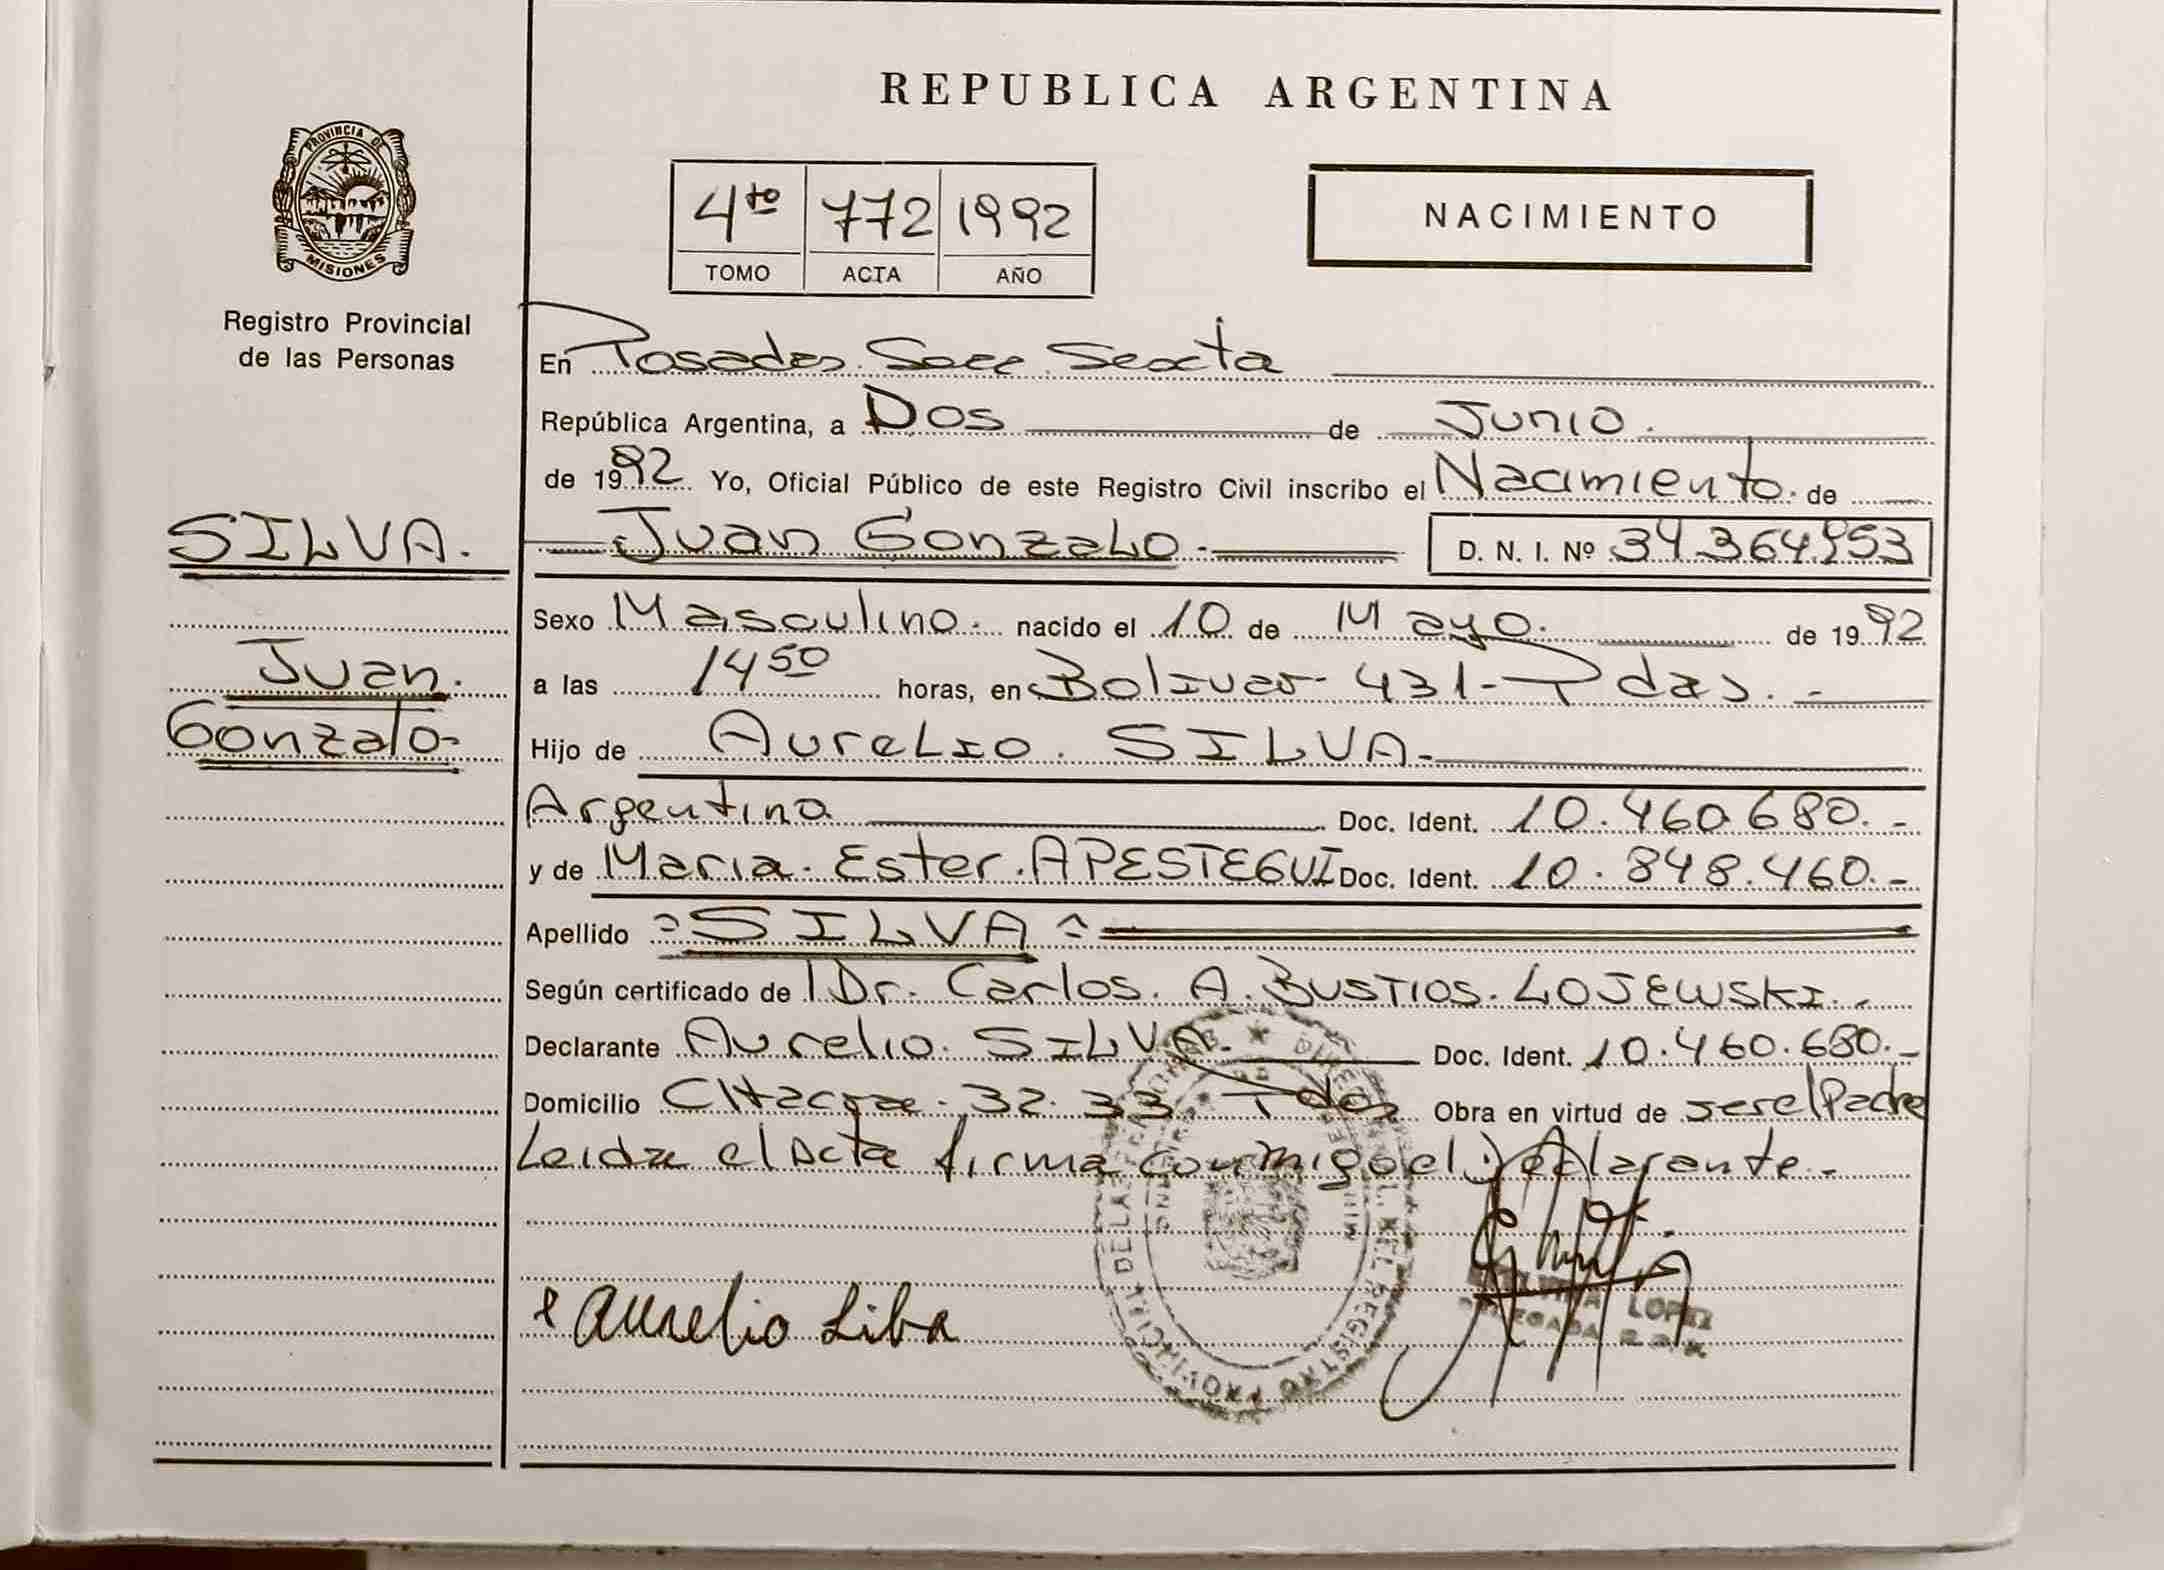 REPUBLICA ARGENTINA
PROVINCIA DE
MISIONES
Registro Provincial
de las Personas
4to 772 1992
TOMO ACTA AÑO
NACIMIENTO
En Posadas. Secc. Sexta
República Argentina, a Dos de Junio.
de 1992 Yo, Oficial Público de este Registro Civil inscribo el Nacimiento. de
SILVA.
Juan.
Gonzalo-
Juan Gonzalo.- D. N. I. Nº 34.364.953
Sexo Masculino. nacido el 10 de Mayo. de 1992
a las 14 50 horas, en Bolivar 431- Pdas.-
Hijo de Aurelio. SILVA-
Argentina Doc. Ident. 10.460.680.-
y de Maria. Ester. APESTEGUI Doc. Ident. 10.848.460.-
Apellido =SILVA=
Según certificado de Dr. Carlos. A. BUSTIOS. LOJEWSKI.-
Declarante Aurelio. SILVA. Doc. Ident. 10.460.680.-
Domicilio CHacra. 32. 33. Pdas Obra en virtud de ser el Padre
Leida el Acta firma conmigo el Declarante.-
Aurelio Silva
LOPEZ
DELEGADA